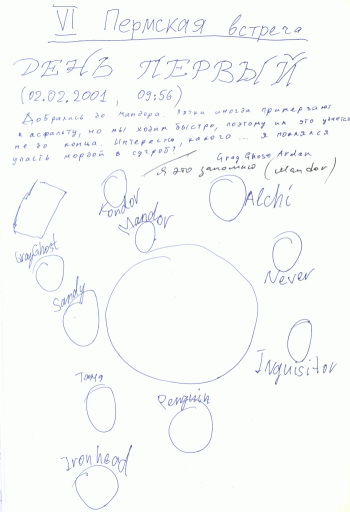 VI Пермская встреча
ДЕНЬ ПЕРВЫЙ
(02.02.2001, 09:56)
Добрались до Мандора. Пятки иногда примерзают
к асфальту, но мы ходим быстро, поэтому им это удаётся
не до конца. Интересно, какого ... я поклялся
упасть мордой в сугроб?
Gray Ghost Ardan
Я это запомню (Mandor)
Kondor
Mandor
Alchi
GrayGhost
Never
Sandy
Inquisitor
Tang
Penguin
Ironhead